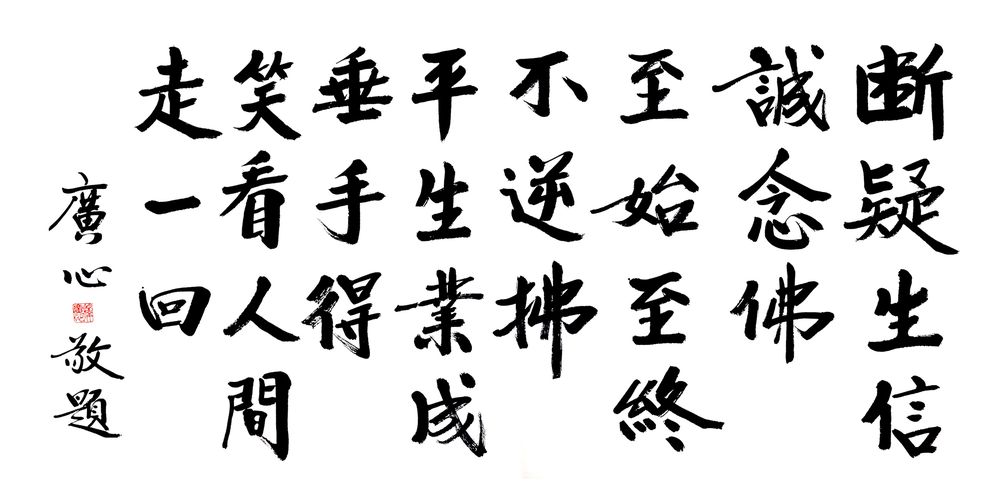 斷疑生信
誠念佛
至始至終
不逆拂
平生業成
垂手得
笑看人間
走一回
廣心
敬題